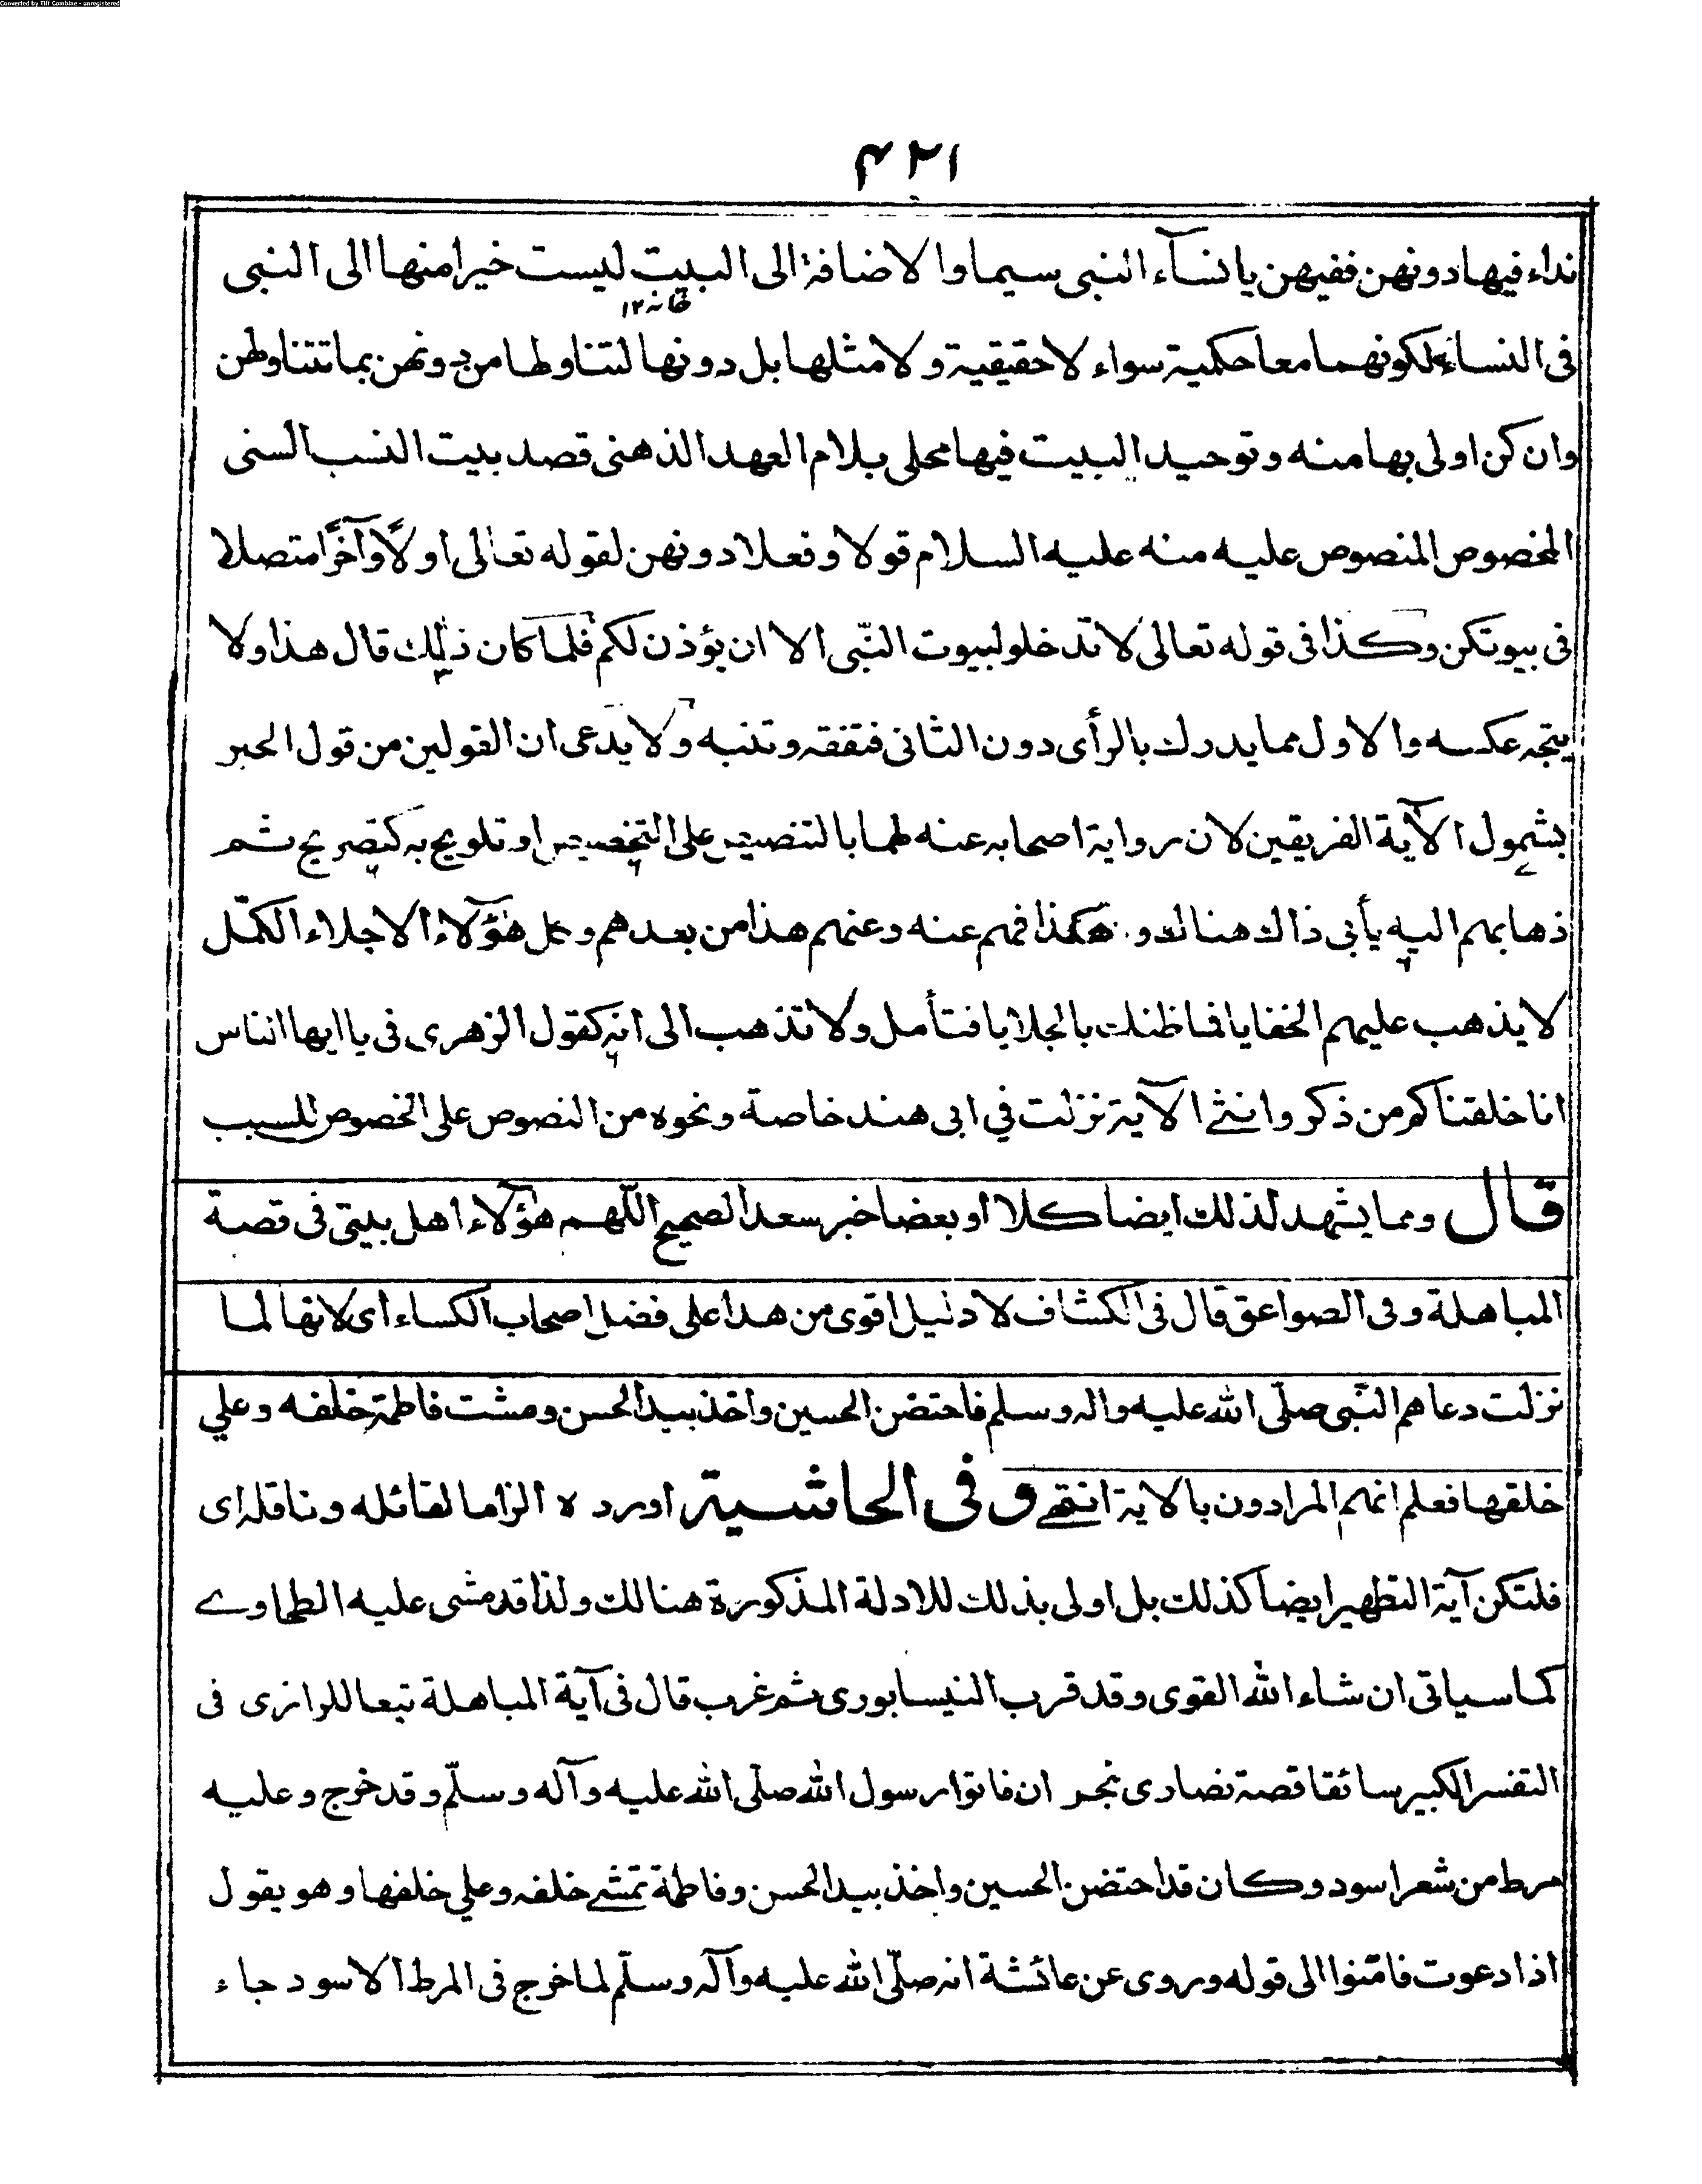 Converted by Tiff Combine - unregistered
۴۲۱
نداء فيها دونهن ففيهن يا نسآء النبى سيما والاضافة الى البيت ليست خيرا منها الى النبى
خانه ۱۲
فى النساء لكونهما معا حكمية سواء لا حقيقية ولا مثلها بل دونها لتناولها من دونهن بما تتناولهن
وان كن اولى بها منه وتوحيد البيت فيها محلى بلام العهد الذهنى قصد بيت النسب السنى
المخصوص المنصوص عليه منه عليه السلام قولا وفعلا دونهن لقوله تعالى اولًا وآخرًا متصلا
فى بيوتكن وكذا فى قوله تعالى لا تدخلو لبيوت النّبى الا ان يؤذن لكم فلما كان ذلك قال هذا ولا
يتجه عكسه والاول مما يدرك بالرأى دون الثانى فتفقه وتنبه ولا يدعى ان القولين من قول الحبر
بشمول الآية الفريقين لان رواية اصحابه عنه لهما بالتنصيص على التخصيص او تلويح به كتصريح ثم
ذهابهم اليه يأبى ذاك هنالك و هكذا فهم عنه وعنهم هذا من بعدهم وعلى هؤلاء الاجلاء الكمّل
لا يذهب عليهم الخفايا فما ظنك بالجلايا فتأمل ولا تذهب الى انه كقول الزهرى فى يا ايها الناس
انا خلقناكم من ذكر وانثى الآية نزلت في ابى هند خاصة ونحوه من النصوص على الخصوص للسبب
قال ومما يشهد لذلك ايضا كلا او بعضا خبر سعد الصحيح اللّهم هؤلاء اهل بيتى فى قصة
المباهلة وفى الصواعق قال فى الكشاف لا دليل اقوى من هذا على فضل اصحاب الكساء اى لانها لما
نزلت دعاهم النّبى صلّى الله عليه واله وسلم فاحتضن الحسين واخذ بيد الحسن ومشت فاطمة خلفه وعلي
خلفها فعلم انهم المرادون بالاية انتهى وفى الحاشية اورده الزاما لقائله وناقله اى
فلتكن آية التطهير ايضا كذلك بل اولى بذلك للادلة المذكورة هنالك ولذا قد مشى عليه الطحاوے
كما سياتى ان شاء الله القوى وقد قرب النيسابورى ثم غرب قال فى آية المباهلة تبعا للرازى فى
التفسر الكبير سائقا قصة نصارى نجران فاتوا رسول الله صلّى الله عليه وآله وسلّم وقد خرج وعليه
مرط من شعر اسود وكان قد احتضن الحسين واخذ بيد الحسن وفاطمة تمشے خلفه وعلي خلفها وهو يقول
اذا دعوت فامّنوا الى قوله وروى عن عائشة انه صلّى الله عليه وآله وسلّم لما خرج فى المرط الاسود جاء